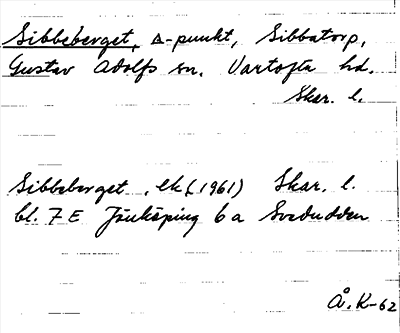 Sibbeberget, △-punkt, Sibbatorp,
Gustav Adolfs sn. Vartofta hd.
Skar. l.
Sibbeberget, ek (1961) Skar. l.
bl. 7E Jönköping 6a Svedudden
Å. K-62